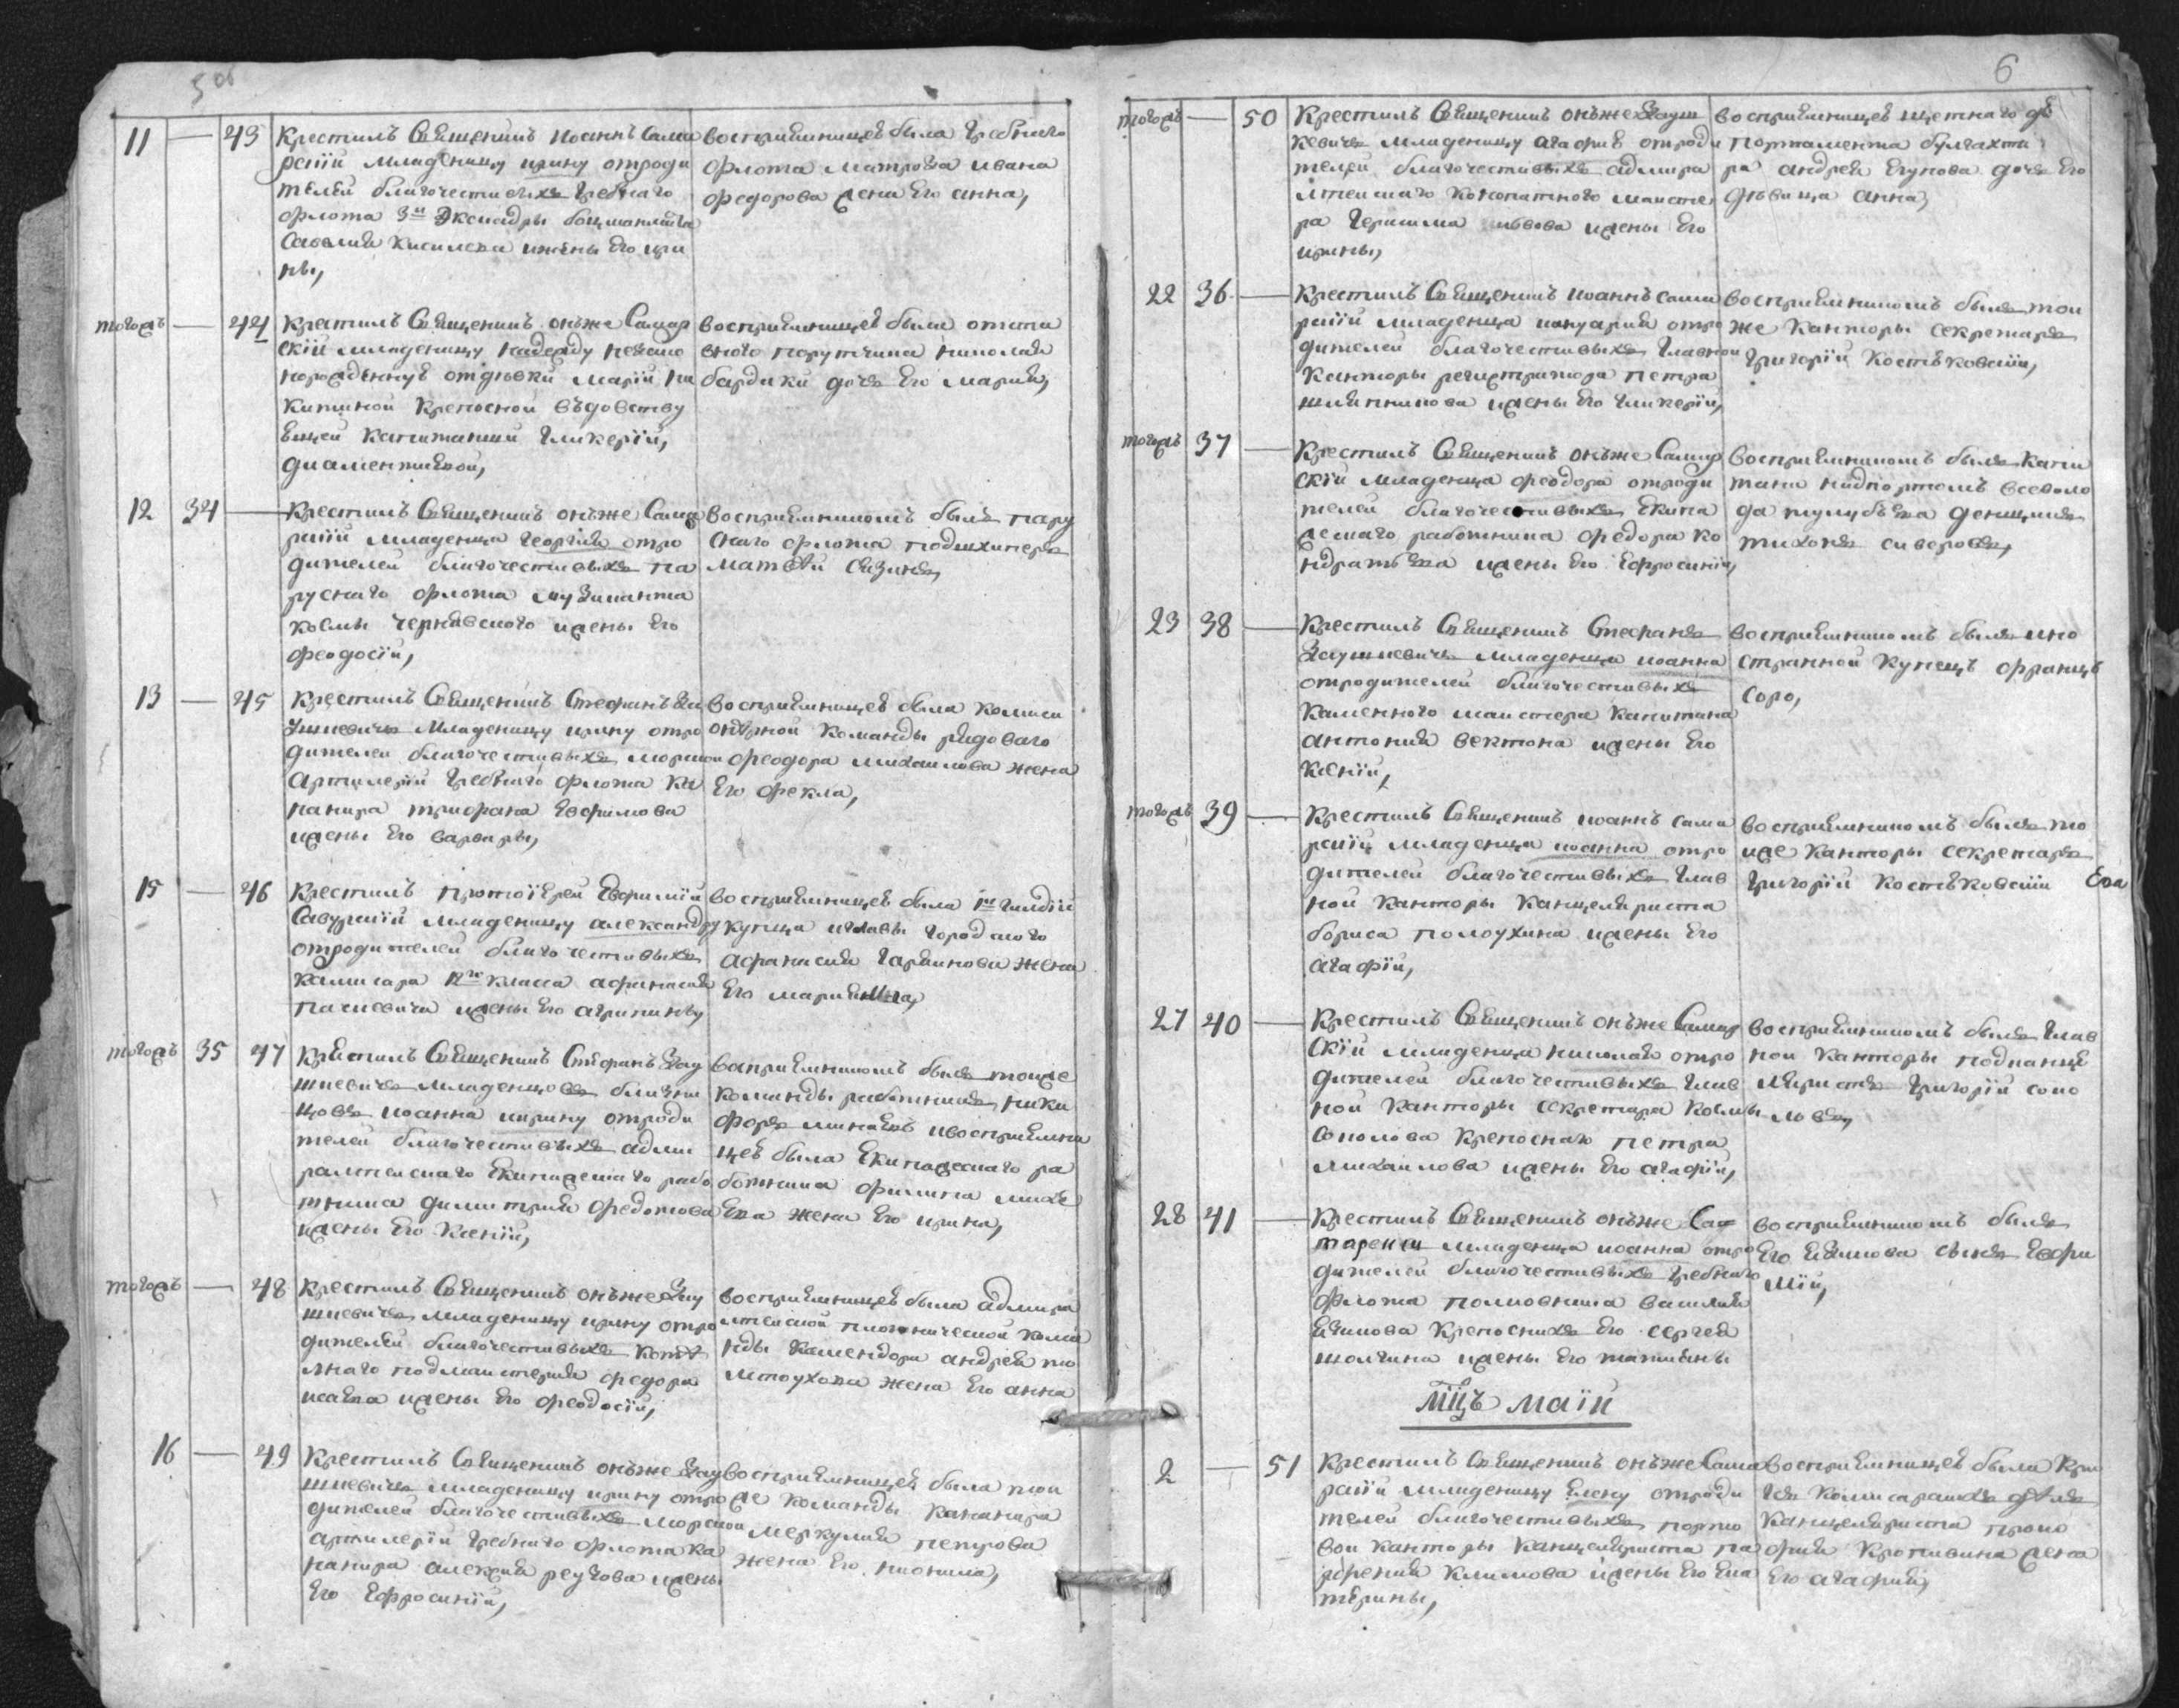 5 об
11 — 43 Крестилъ Священникъ Иоаннъ Сама
рскiй младеницу ирину отроди
телей благочестивыхъ гребнаго
флота 3й Эскадры боцманмата
Савелия Киселева ижены Его ири
ны,
восприемницею была гребнаго
флота матроза ивана
федорова жена Его анна,
тогожъ — 44 Крестилъ Священникъ онъже Самар
скiй младеницу надежду незако
норожденную отдѣвки марiи ни
китиной крепосной вѣдовству
ющей капитанши гликерiи,
диаментиевой,
восприемницею была отста
вного порутчика николая
бардаки дочь Его мария,
12 34 — Крестилъ Священникъ онъже Сама
рскiй младенца георгия отро
дителей благочестивыхъ па
руснаго флота музиканта
козмы чернявского ижены Его
феодосiи,
восприемникомъ былъ пару
снаго флота подшхиперъ
матвѣй Сизинъ,
13 — 45 Крестилъ Священникъ Стефанъ За
ушкевичь младеницу ирину отро
дителей благочестивыхъ морской
артилерiи гребнаго флота ка
нанира трифана Евфимова
ижены Его варвары,
восприемницею была комиси
онерной команды рядоваго
феодора михаилова жена
Его фекла,
15 — 46 Крестилъ протоiерей Евфимiй
Савурскiй младеницу александру
отродителей благочестивыхъ
камисара 12го класса афанасия
пачкевича ижены Его агрипины,
восприемницею была 1й гилдiи
купца иглавы городского
афанасия жена
Его
тогожъ 35 47 Крестилъ Священникъ Стефанъ Зау
шкевичь младенцовъ близни
цовъ иоанна иирину отроди
телей благочестивыхъ адми
ралтейскаго Екипажескаго рабо
тника димитрия федотова
ижены Его Ксенiи,
восприемникомъ былъ тойже
команды работникъ ники
форъ минаевъ ивосприемни
цею была Екипажескаго ра
ботника филипа михѣ
ева жена Его ирина,
тогожъ — 48 Крестилъ Священникъ онъже Зау
шкевичь младеницу ирину отро
дителей благочестивыхъ
лнаго подмаистерия федора
исаева ижены Его феодосiи,
восприемницею была адмира
лтейской плотнической кома
нды камендора андрея то
лстоухова жена Его анна
16 — 49 Крестилъ Священникъ онъже Зау
шкевичь младеницу ирину отро
дителей благочестивыхъ морской
артилерiи гребнаго флота ка
нанира алексия реузова ижены
Его Ефросинiи,
восприемницею была той
же команды кананира
меркулия петрова
жена Его нионила,
6
тогожъ — 50 Крестилъ Священникъ онъже Зауш
кевичь младеницу агафию отроди
телей благочестивыхъ адмира
лтейскаго конопатного маисте
ра герасима львова ижены Его
ирины,
восприемницею щетнаго де
партамента булгахте
ра андрея Егунова дочь Его
дѣвица анна,
22 36 — Крестилъ Священникъ иоаннъ сама
рскiй младенца иануария отро
дителей благочестивыхъ главной
канторы регистратора петра
шляпникова ижены Его гликерiи,
восприемникомъ былъ той
же канторы секретарь
григорiй костѣковскiй,
тогожъ 37 — Крестилъ Священникъ онъже Самар
скiй младенца феодора отроди
телей благочестивыхъ Екипа
жескаго работника федора ко
ндратьева ижены Его Ефросинiи,
восприемникомъ былъ капи
тана надпортомъ всеволо
да тулубьева денщикъ
тихонъ сиворовъ,
23 38 — Крестилъ Священникъ Стефанъ
Заушкевичь младенца иоанна
отродителей благочестивыхъ
каменного маистера капитана
антония вектона ижены Его
Ксенiи,
восприемникомъ былъ ино
странной купецъ францъ
Соро,
тогожъ 39 — Крестилъ Священникъ иоаннъ сама
рскiй младенца иоанна отро
дителей благочестивыхъ глав
ной канторы канцеляриста
бориса полоухина ижены Его
агафiи,
восприемникомъ былъ то
йже канторы секретарь
григорiй костѣковскiй
27 40 — Крестилъ Священникъ онъже Самар
скiй младенца николая отро
дителей благочестивыхъ глав
ной канторы секретара козмы
Соколова крепоснаго петра
михаилова ижены Его агафiи,
восприемникомъ былъ глав
ной канторы подканце
ляристъ григорiй соко
ловъ,
28 41 — Крестилъ Священникъ онъже
младенца иоанна отро
дителей благочестивыхъ гребнаго
флота полковника василия
Языкова крепосныхъ Его сергея
шолгина ижены Его татияны
восприемникомъ былъ
Его Языкова сынъ Евфи
мiй,
мцъ маiй
2 — 51 Крестилъ Священникъ онъже Сама
рскiй младеницу Елену отроди
телей благочестивыхъ порто
вой канторы канцеляриста па
рфения климова ижены Его Ека
терины,
восприемницею была кри
гсъ комисарскихъ дѣлъ
канцеляриста проко
фия кропивина жена
Его агафия,